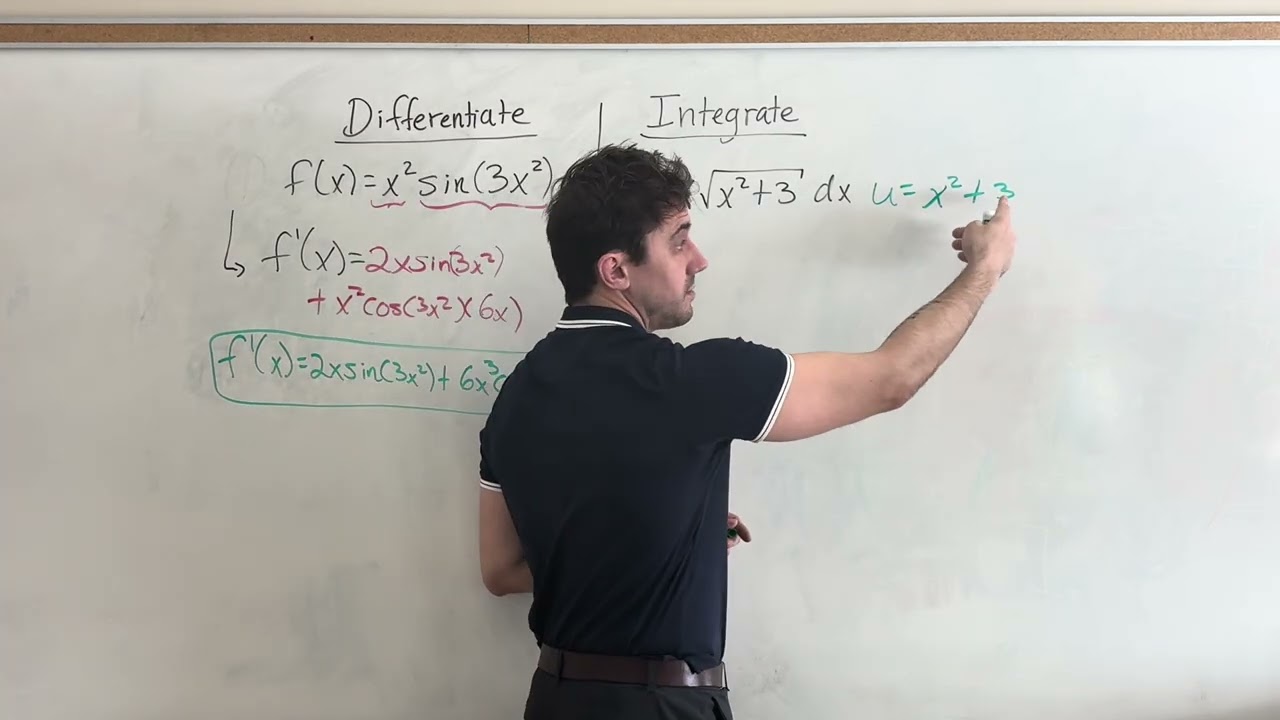 Differentiate | Integrate
f(x)=x²sin(3x²)
√(x²+3) dx u=x²+3
f'(x)=2xsin(3x²)
+ x²cos(3x²)(6x)
f'(x)=2xsin(3x²)+ 6x³